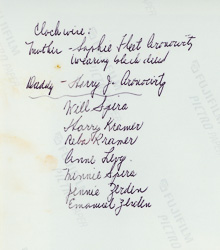 Clockwise:
Mother - Sophie Flest Aronowitz
wearing black dress
Daddy - Harry J. Aronowitz
Will Spera
Harry Kramer
Reba Kramer
Anne Levy
Minnie Spera
Jennie Zerden
Emanuel Zerden